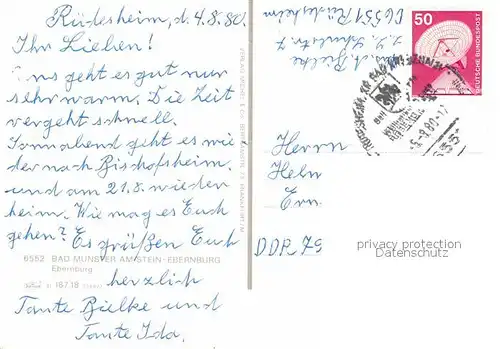 Rüdesheim, d. 4.8.80.
Ihr Lieben!
Uns geht es gut nur
sehr warm. Die Zeit
vergeht schnell.
Sonnabend geht es wie
der nach Bischofsheim.
und am 21.8. wieder
heim. Wie mag es Euch
gehen? Es grüßen Euch
herzlich
Tante Bielke und
Tante Ida.
6552 BAD MÜNSTER AM STEIN-EBERNBURG
Ebernburg
187.18
6551 Rüdesheim
Bielke
50
DEUTSCHE BUNDESPOST
Herrn
Heln
Ern
DDR 75
privacy protection
Datenschutz